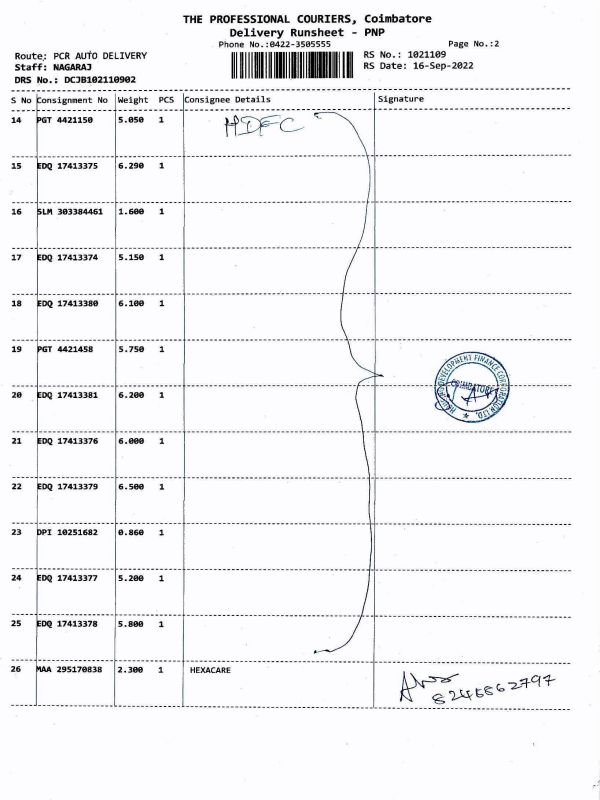 THE PROFESSIONAL COURIERS, Coimbatore
Delivery Runsheet - PNP
Phone No.:0422-3505555
Page No.:2
Route: PCR AUTO DELIVERY
RS No.: 1021109
Staff: NAGARAJ
RS Date: 16-Sep-2022
DRS No.: DCJB102110902
S No Consignment No Weight PCS Consignee Details Signature
14 PGT 4421150 5.050 1 HDFC
15 EDQ 17413375 6.290 1
16 SLM 303384461 1.600 1
17 EDQ 17413374 5.150 1
18 EDQ 17413380 6.100 1
19 PGT 4421458 5.750 1
HOUSING DEVELOPMENT FINANCE CORPORATION LTD.
COIMBATORE
20 EDQ 17413381 6.200 1
21 EDQ 17413376 6.000 1
22 EDQ 17413379 6.500 1
23 DPI 10251682 0.860 1
24 EDQ 17413377 5.200 1
25 EDQ 17413378 5.800 1
26 MAA 295170838 2.300 1 HEXACARE